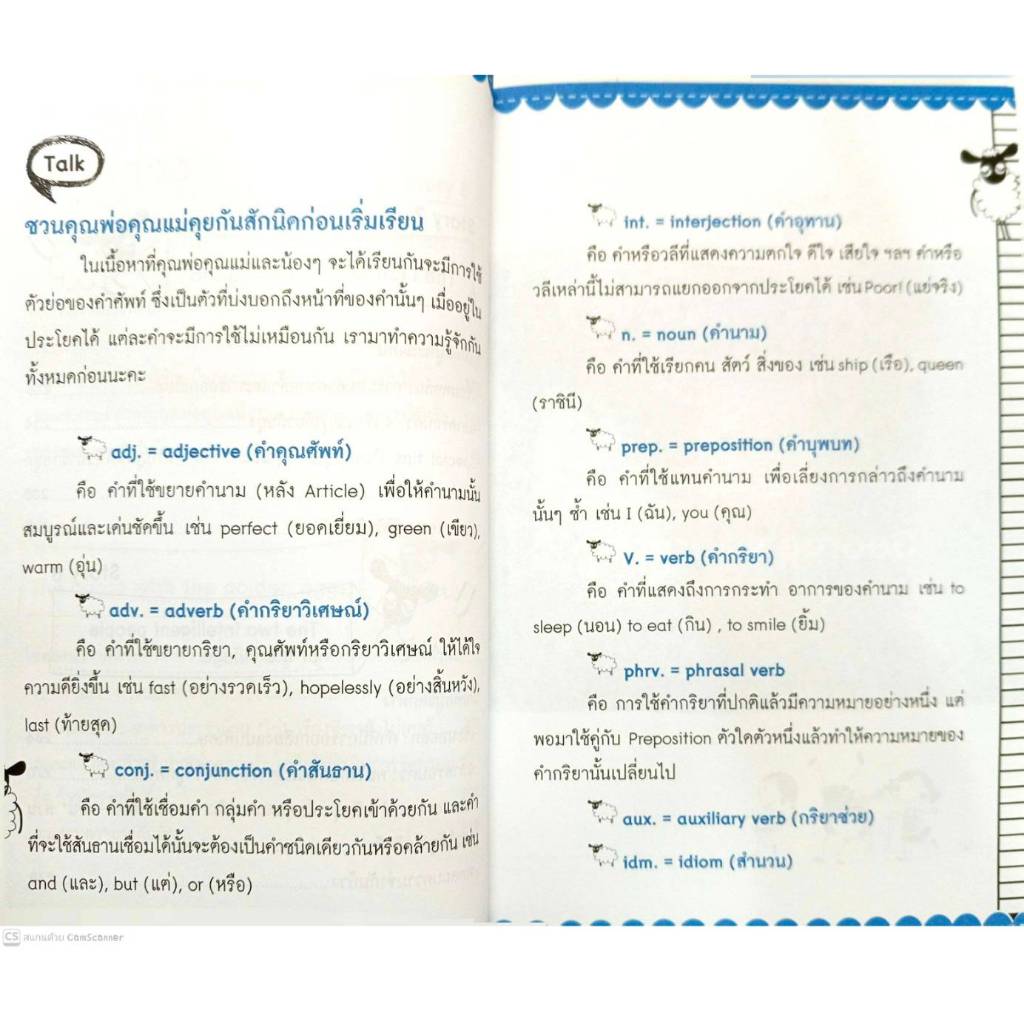 Talk
ชวนคุณพ่อคุณแม่คุยกันสักนิดก่อนเริ่มเรียน
ในเนื้อหาที่คุณพ่อคุณแม่และน้องๆ จะได้เรียนกันจะมีการใช้
ตัวย่อของคำศัพท์ ซึ่งเป็นตัวที่บ่งบอกถึงหน้าที่ของคำนั้นๆ เมื่ออยู่ใน
ประโยคได้ แต่ละคำจะมีการใช้ไม่เหมือนกัน เรามาทำความรู้จักกัน
ทั้งหมดก่อนนะคะ
adj. = adjective (คำคุณศัพท์)
คือ คำที่ใช้ขยายคำนาม (หลัง Article) เพื่อให้คำนามนั้น
สมบูรณ์และเด่นชัดขึ้น เช่น perfect (ยอดเยี่ยม), green (เขียว),
warm (อุ่น)
adv. = adverb (คำกริยาวิเศษณ์)
คือ คำที่ใช้ขยายกริยา, คุณศัพท์หรือกริยาวิเศษณ์ ให้ได้ใจ
ความดียิ่งขึ้น เช่น fast (อย่างรวดเร็ว), hopelessly (อย่างสิ้นหวัง),
last (ท้ายสุด)
conj. = conjunction (คำสันธาน)
คือ คำที่ใช้เชื่อมคำ กลุ่มคำ หรือประโยคเข้าด้วยกัน และคำ
ที่จะใช้สันธานเชื่อมได้นั้นจะต้องเป็นคำชนิดเดียวกันหรือคล้ายกัน เช่น
and (และ), but (แต่), or (หรือ)
int. = interjection (คำอุทาน)
คือ คำหรือวลีที่แสดงความตกใจ ดีใจ เสียใจ ฯลฯ คำหรือ
วลีเหล่านี้ไม่สามารถแยกออกจากประโยคได้ เช่น Poor! (แย่จริง)
n. = noun (คำนาม)
คือ คำที่ใช้เรียกคน สัตว์ สิ่งของ เช่น ship (เรือ), queen
(ราชินี)
prep. = preposition (คำบุพบท)
คือ คำที่ใช้แทนคำนาม เพื่อเลี่ยงการกล่าวถึงคำนาม
นั้นๆ ซ้ำ เช่น I (ฉัน), you (คุณ)
V. = verb (คำกริยา)
คือ คำที่แสดงถึงการกระทำ อาการของคำนาม เช่น to
sleep (นอน) to eat (กิน) , to smile (ยิ้ม)
phrv. = phrasal verb
คือ การใช้คำกริยาที่ปกติแล้วมีความหมายอย่างหนึ่ง แต่
พอมาใช้คู่กับ Preposition ตัวใดตัวหนึ่งแล้วทำให้ความหมายของ
คำกริยานั้นเปลี่ยนไป
aux. = auxiliary verb (กริยาช่วย)
idm. = idiom (สำนวน)
CS สแกนด้วย CamScanner